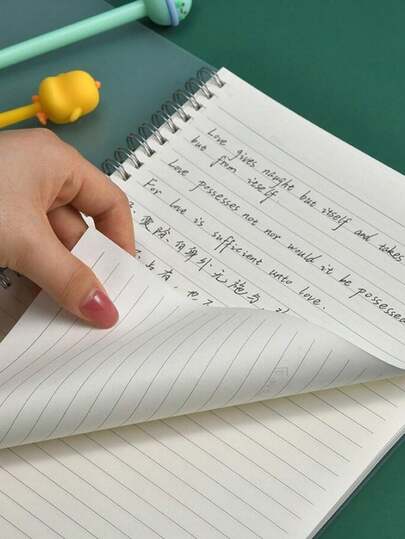 Love gives nåught but itself and takes
but from itself
Love possesses not nor would it be possessed
For love is sufficient unto love.
爱除自身外无施与